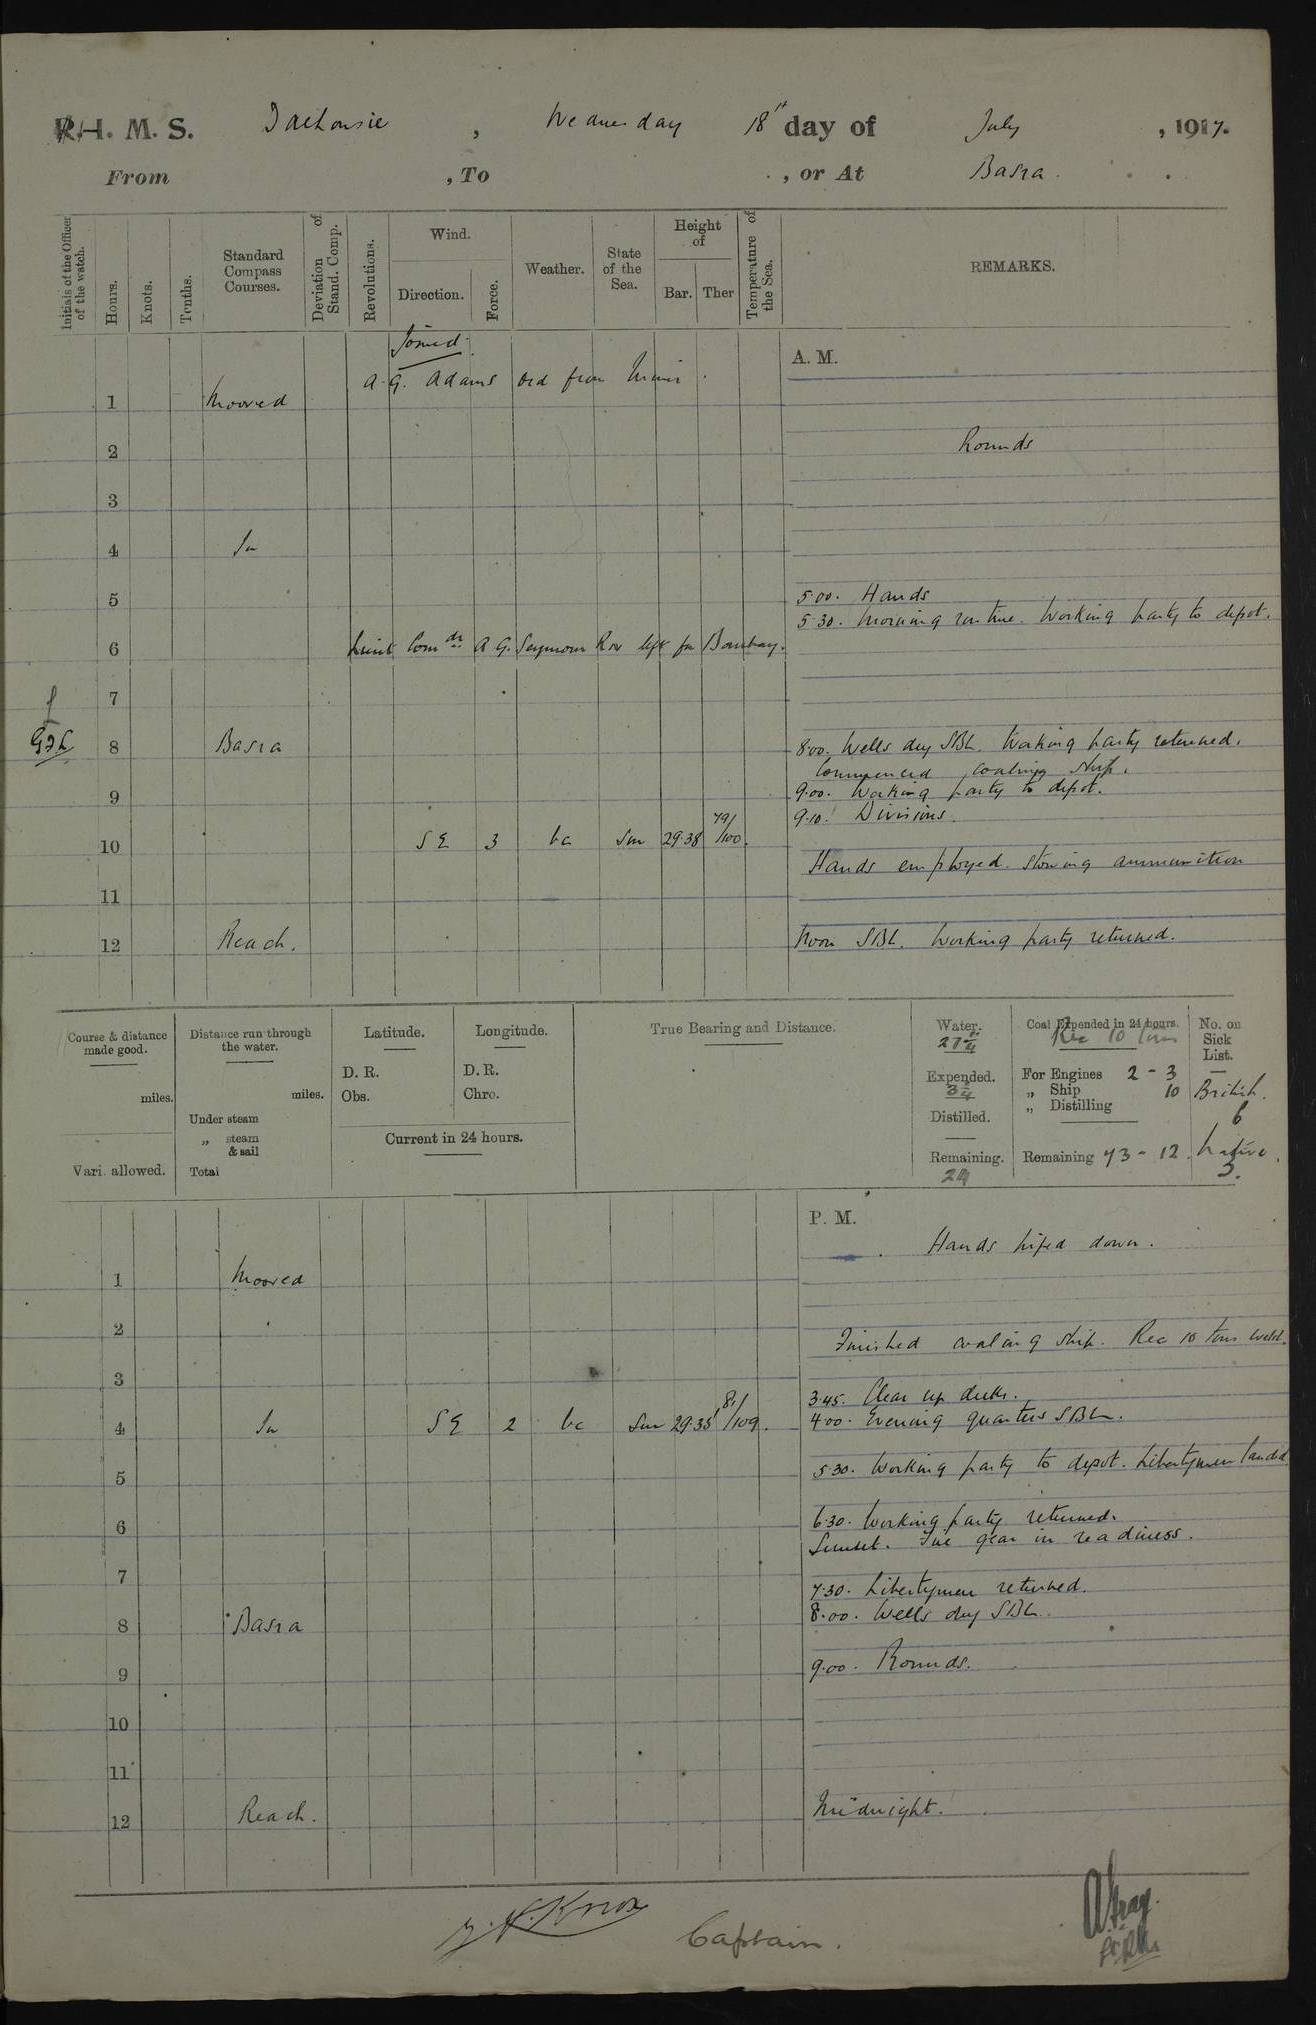 R.I.M.S. Dalhousie, Wednesday 18th day of July, 1917.
From , To , or At Basra.
Initials of the Officer of the watch.
Hours.
Knots.
Tenths.
Standard Compass Courses.
Deviation of Stand. Comp.
Revolutions.
Wind.
Direction.
Force.
Weather.
State of the Sea.
Height of
Bar. Ther
Temperature of the Sea.
REMARKS.
Joined.
A. G. Adams ord from
A. M.
1 Moored
2 Rounds
3
4 In
5 5.00. Hands
5.30. Morning routine. Working party to depot.
6 Lieut Comdr A G. Seymour left for Bombay.
7
8 Basra 8.00. Wells dry SBL. Working party returned.
Commenced coaling ship.
9 9.00. Working party to depot.
9.10. Divisions.
10 S E 3 bc Sm 29.38 79/100.
Hands employed stowing ammunition
11
12 Reach. Noon SBL. Working party returned.
Course & distance made good.
miles.
Vari. allowed.
Distance run through the water.
miles.
Under steam
„ steam & sail
Total
Latitude.
D. R.
Obs.
Longitude.
D. R.
Chro.
Current in 24 hours.
True Bearing and Distance.
Water.
Expended.
Distilled.
Remaining.
24
Coal Expended in 24 hours.
Rec 10 tons
For Engines 2 - 3
„ Ship 10
„ Distilling
Remaining 73 - 12.
No. on Sick List.
British.
6
Native.
3.
P. M.
Hands piped down.
1 Moored
2
Finished coaling ship. Rec 10 tons
3
3.45. Clear up decks.
4 In S E 2 bc Sm 29.35 81/109. 4.00. Evening quarters SBL.
5
5.30. Working party to depot. Libertymen landed
6 6.30. Working party returned.
Sunset. Fire gear in readiness.
7
7.30. Libertymen returned.
8 Basra 8.00. Wells dry SBL.
9 9.00. Rounds.
10
11
12 Reach. Midnight.
Knox
Captain.